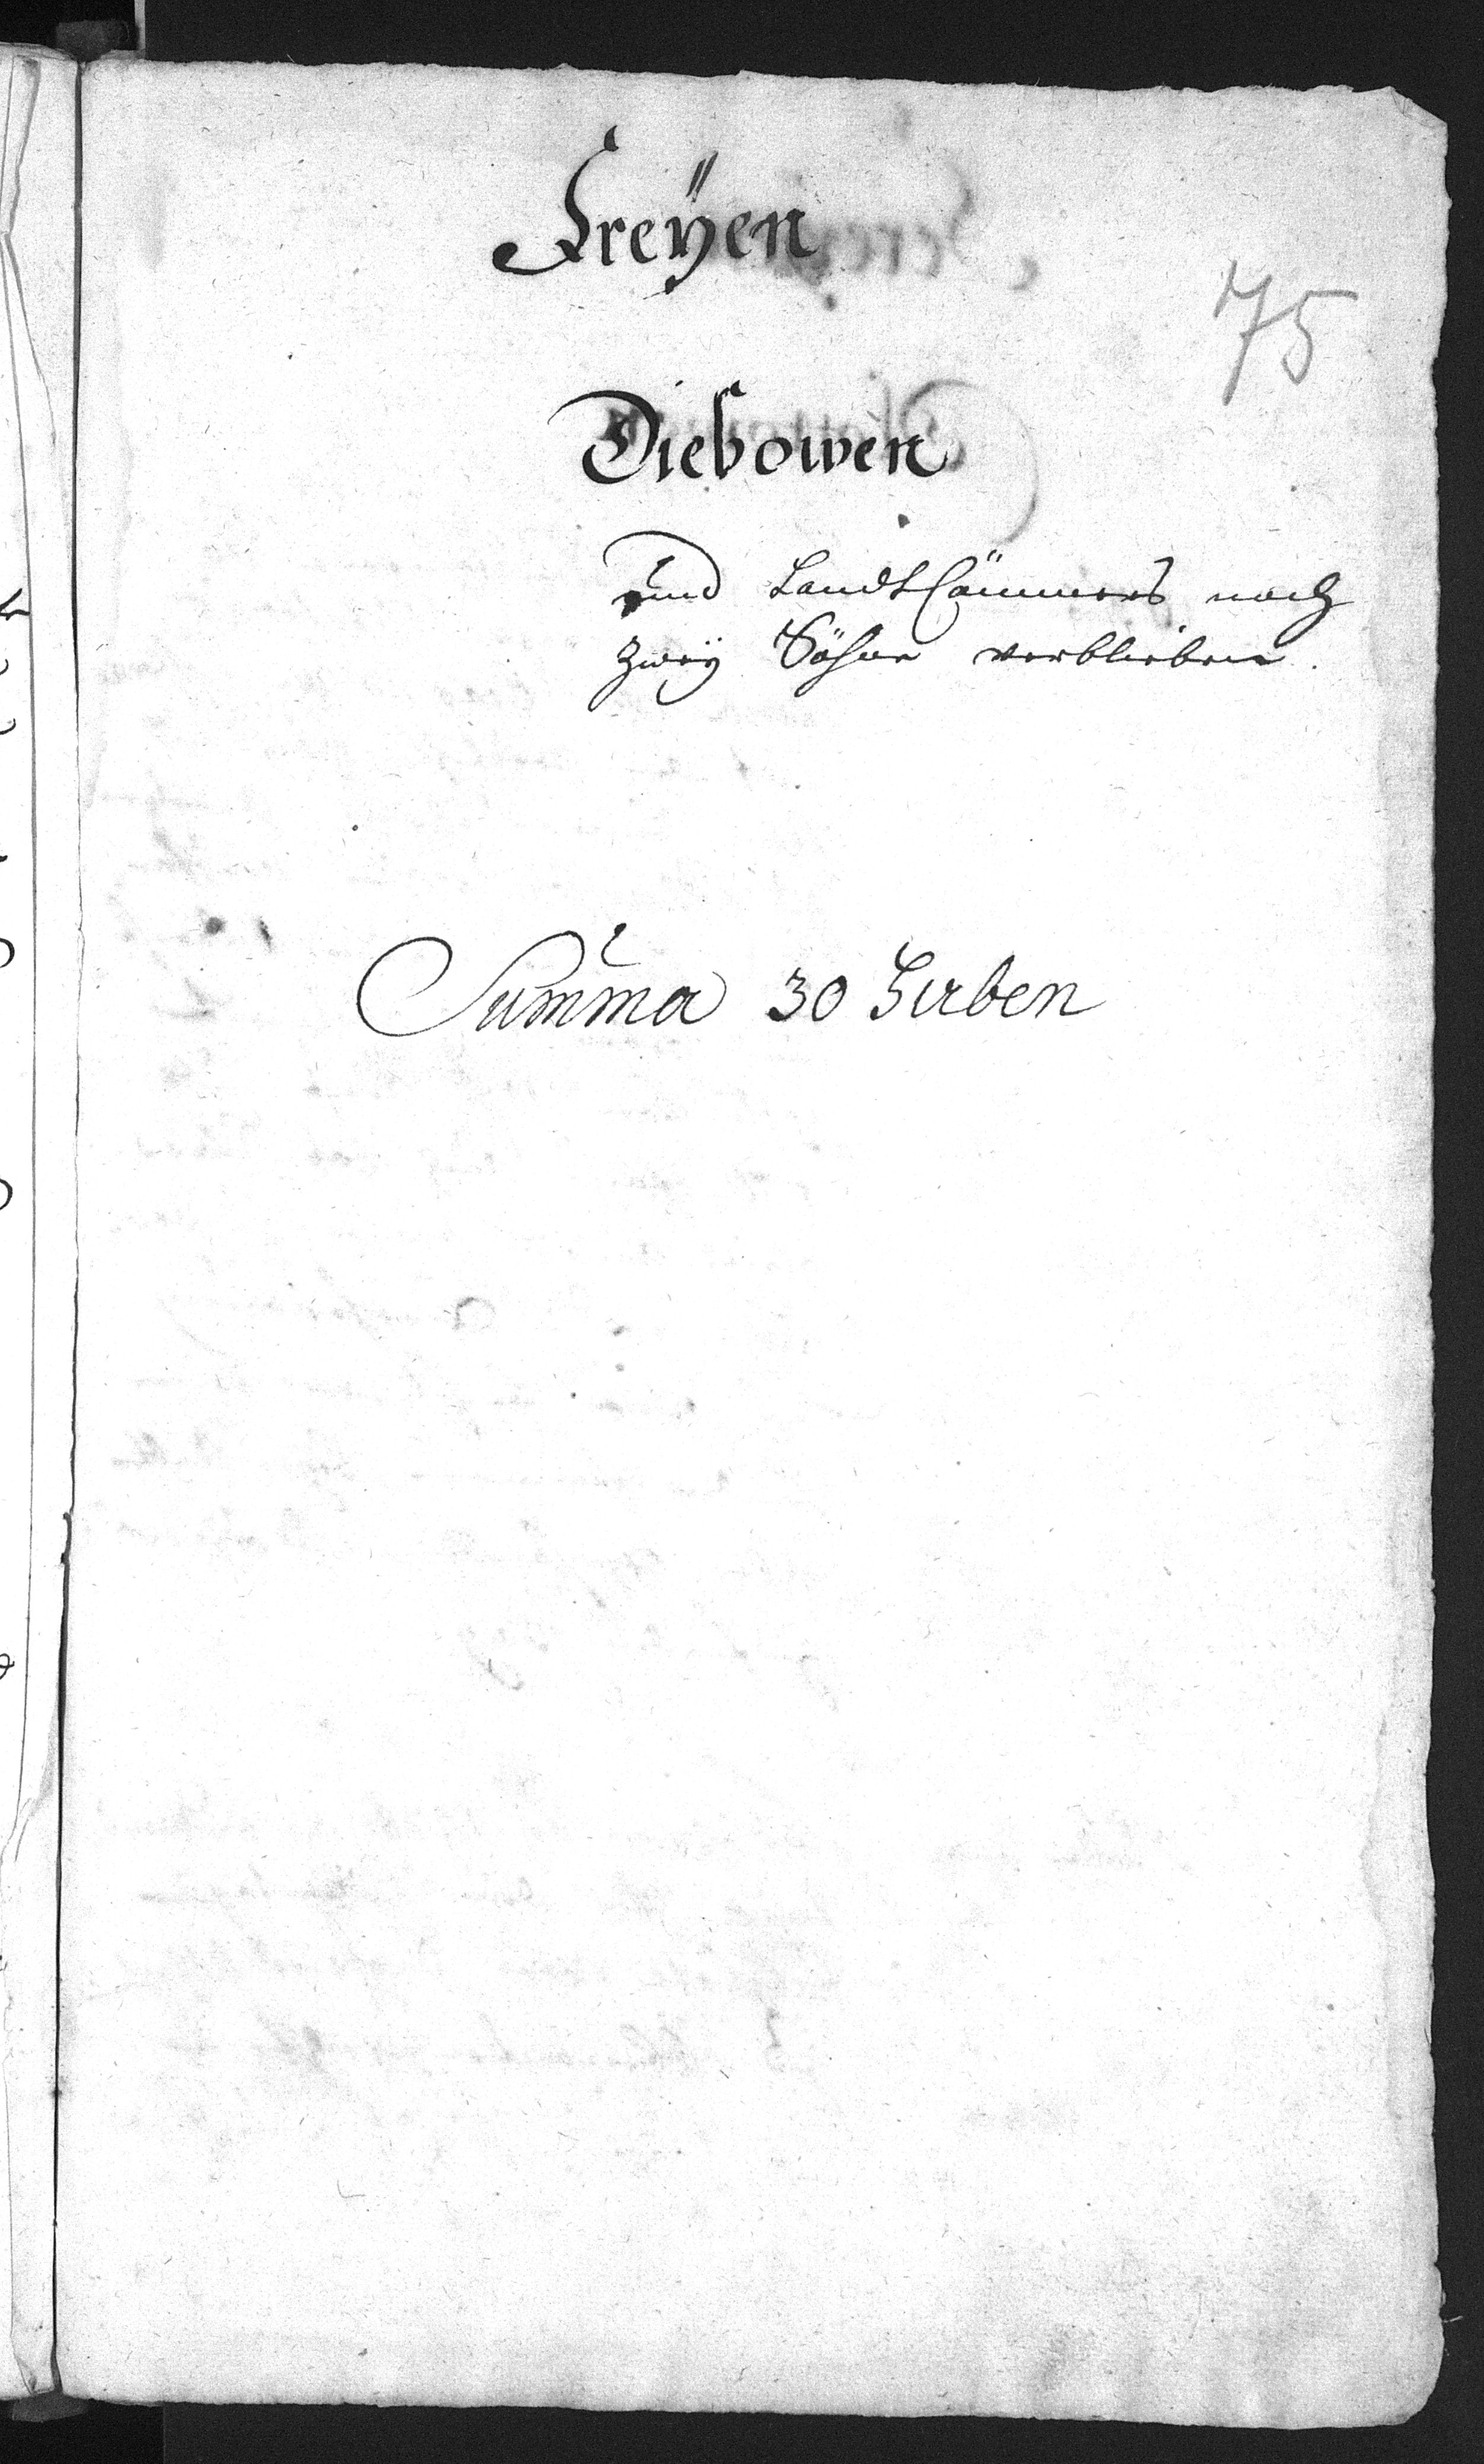 Freÿen
75
Diebowen
und Landt Cämmers nach
zweÿ Söhne verblieben.
Summa 30 Huben